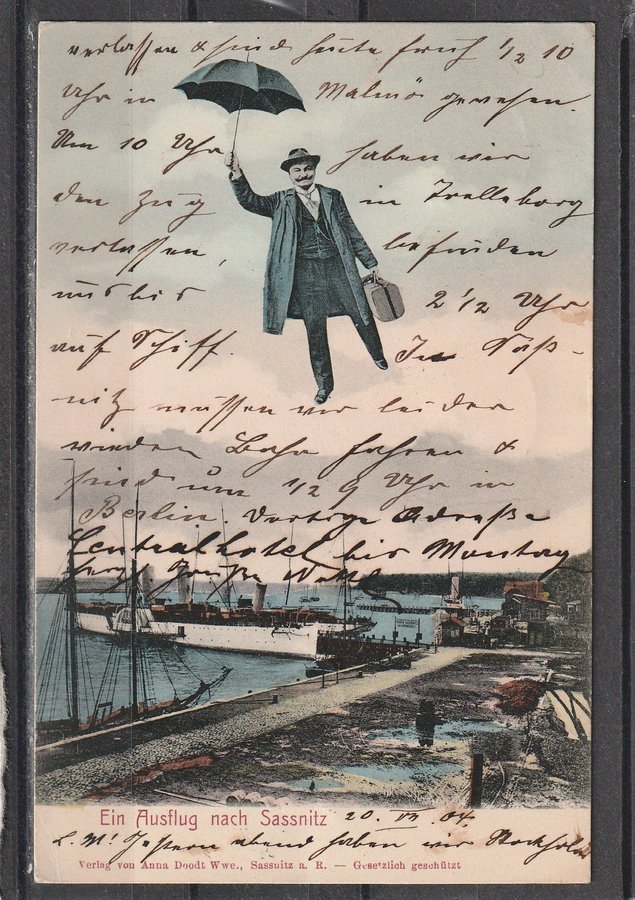 verlassen & sind heute früh 1/2 10
Uhr in Malmö gewesen.
Um 10 Uhr haben wir
den Zug in Trelleborg
verlassen, befinden
uns bis 2 1/2 Uhr
auf Schiff. In Saß-
nitz müssen wir leider
wieder Bahn fahren &
sind um 1/2 9 Uhr in
Berlin. Dortige Adreße
Centralhotel bis Montag
herzl. Grüße
Ein Ausflug nach Sassnitz 20. VII 04.
L. M! Gestern abend haben wir Stockholm
Verlag von Anna Doodt Wwe., Sassnitz a. R. — Gesetzlich geschützt